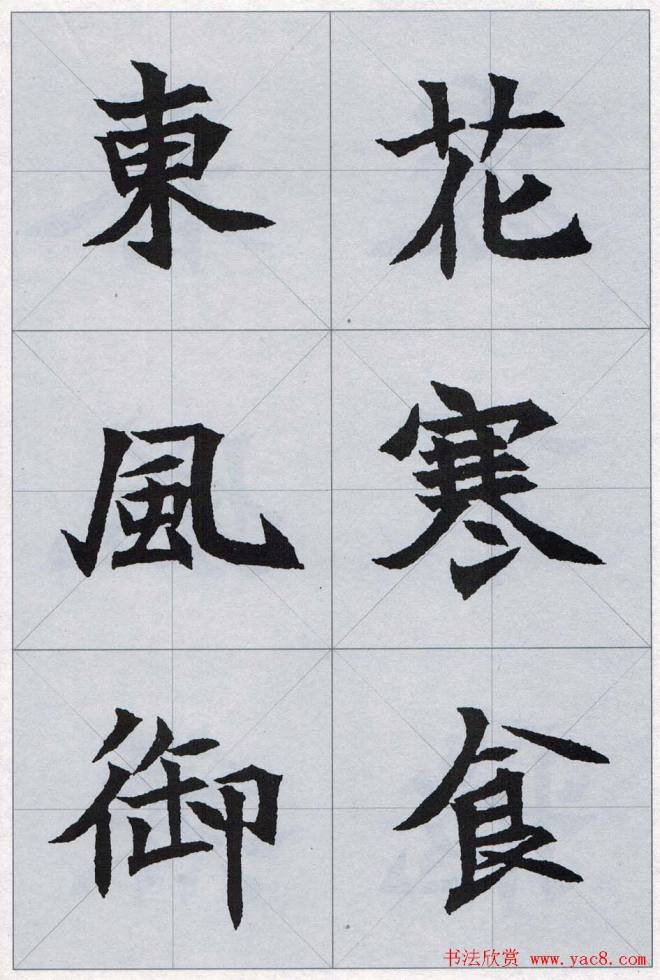 花寒食
東風御
书法欣赏 www.yac8.com